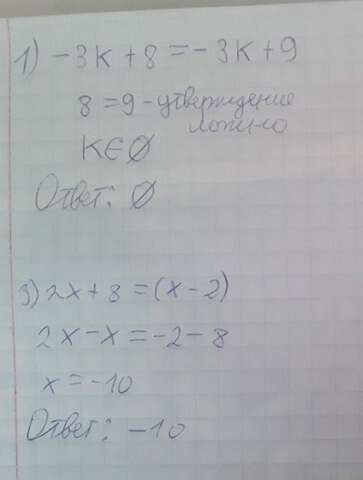 1) -3к + 8 = -3к + 9
8 = 9 - утверждение
ложно
К ∈ ∅
Ответ: ∅
3) 2x + 8 = (x - 2)
2x - x = -2 - 8
x = -10
Ответ: -10